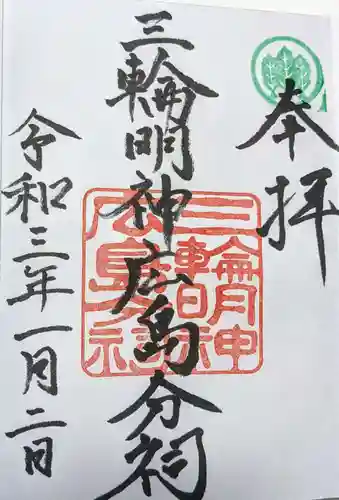 奉拝
三輪明神広島分祠
三輪明神広島分祠
令和三年一月二日